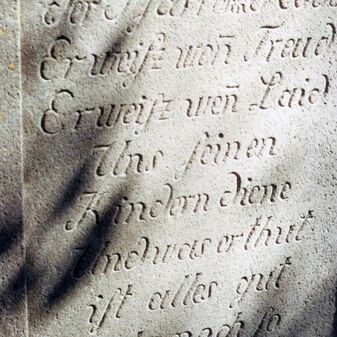 Er weiſz wen̄ Freud
Er weiſz wen̄ Laid
Uns ſeinen
Kindern diene
Und was er thut
iſt alles gut